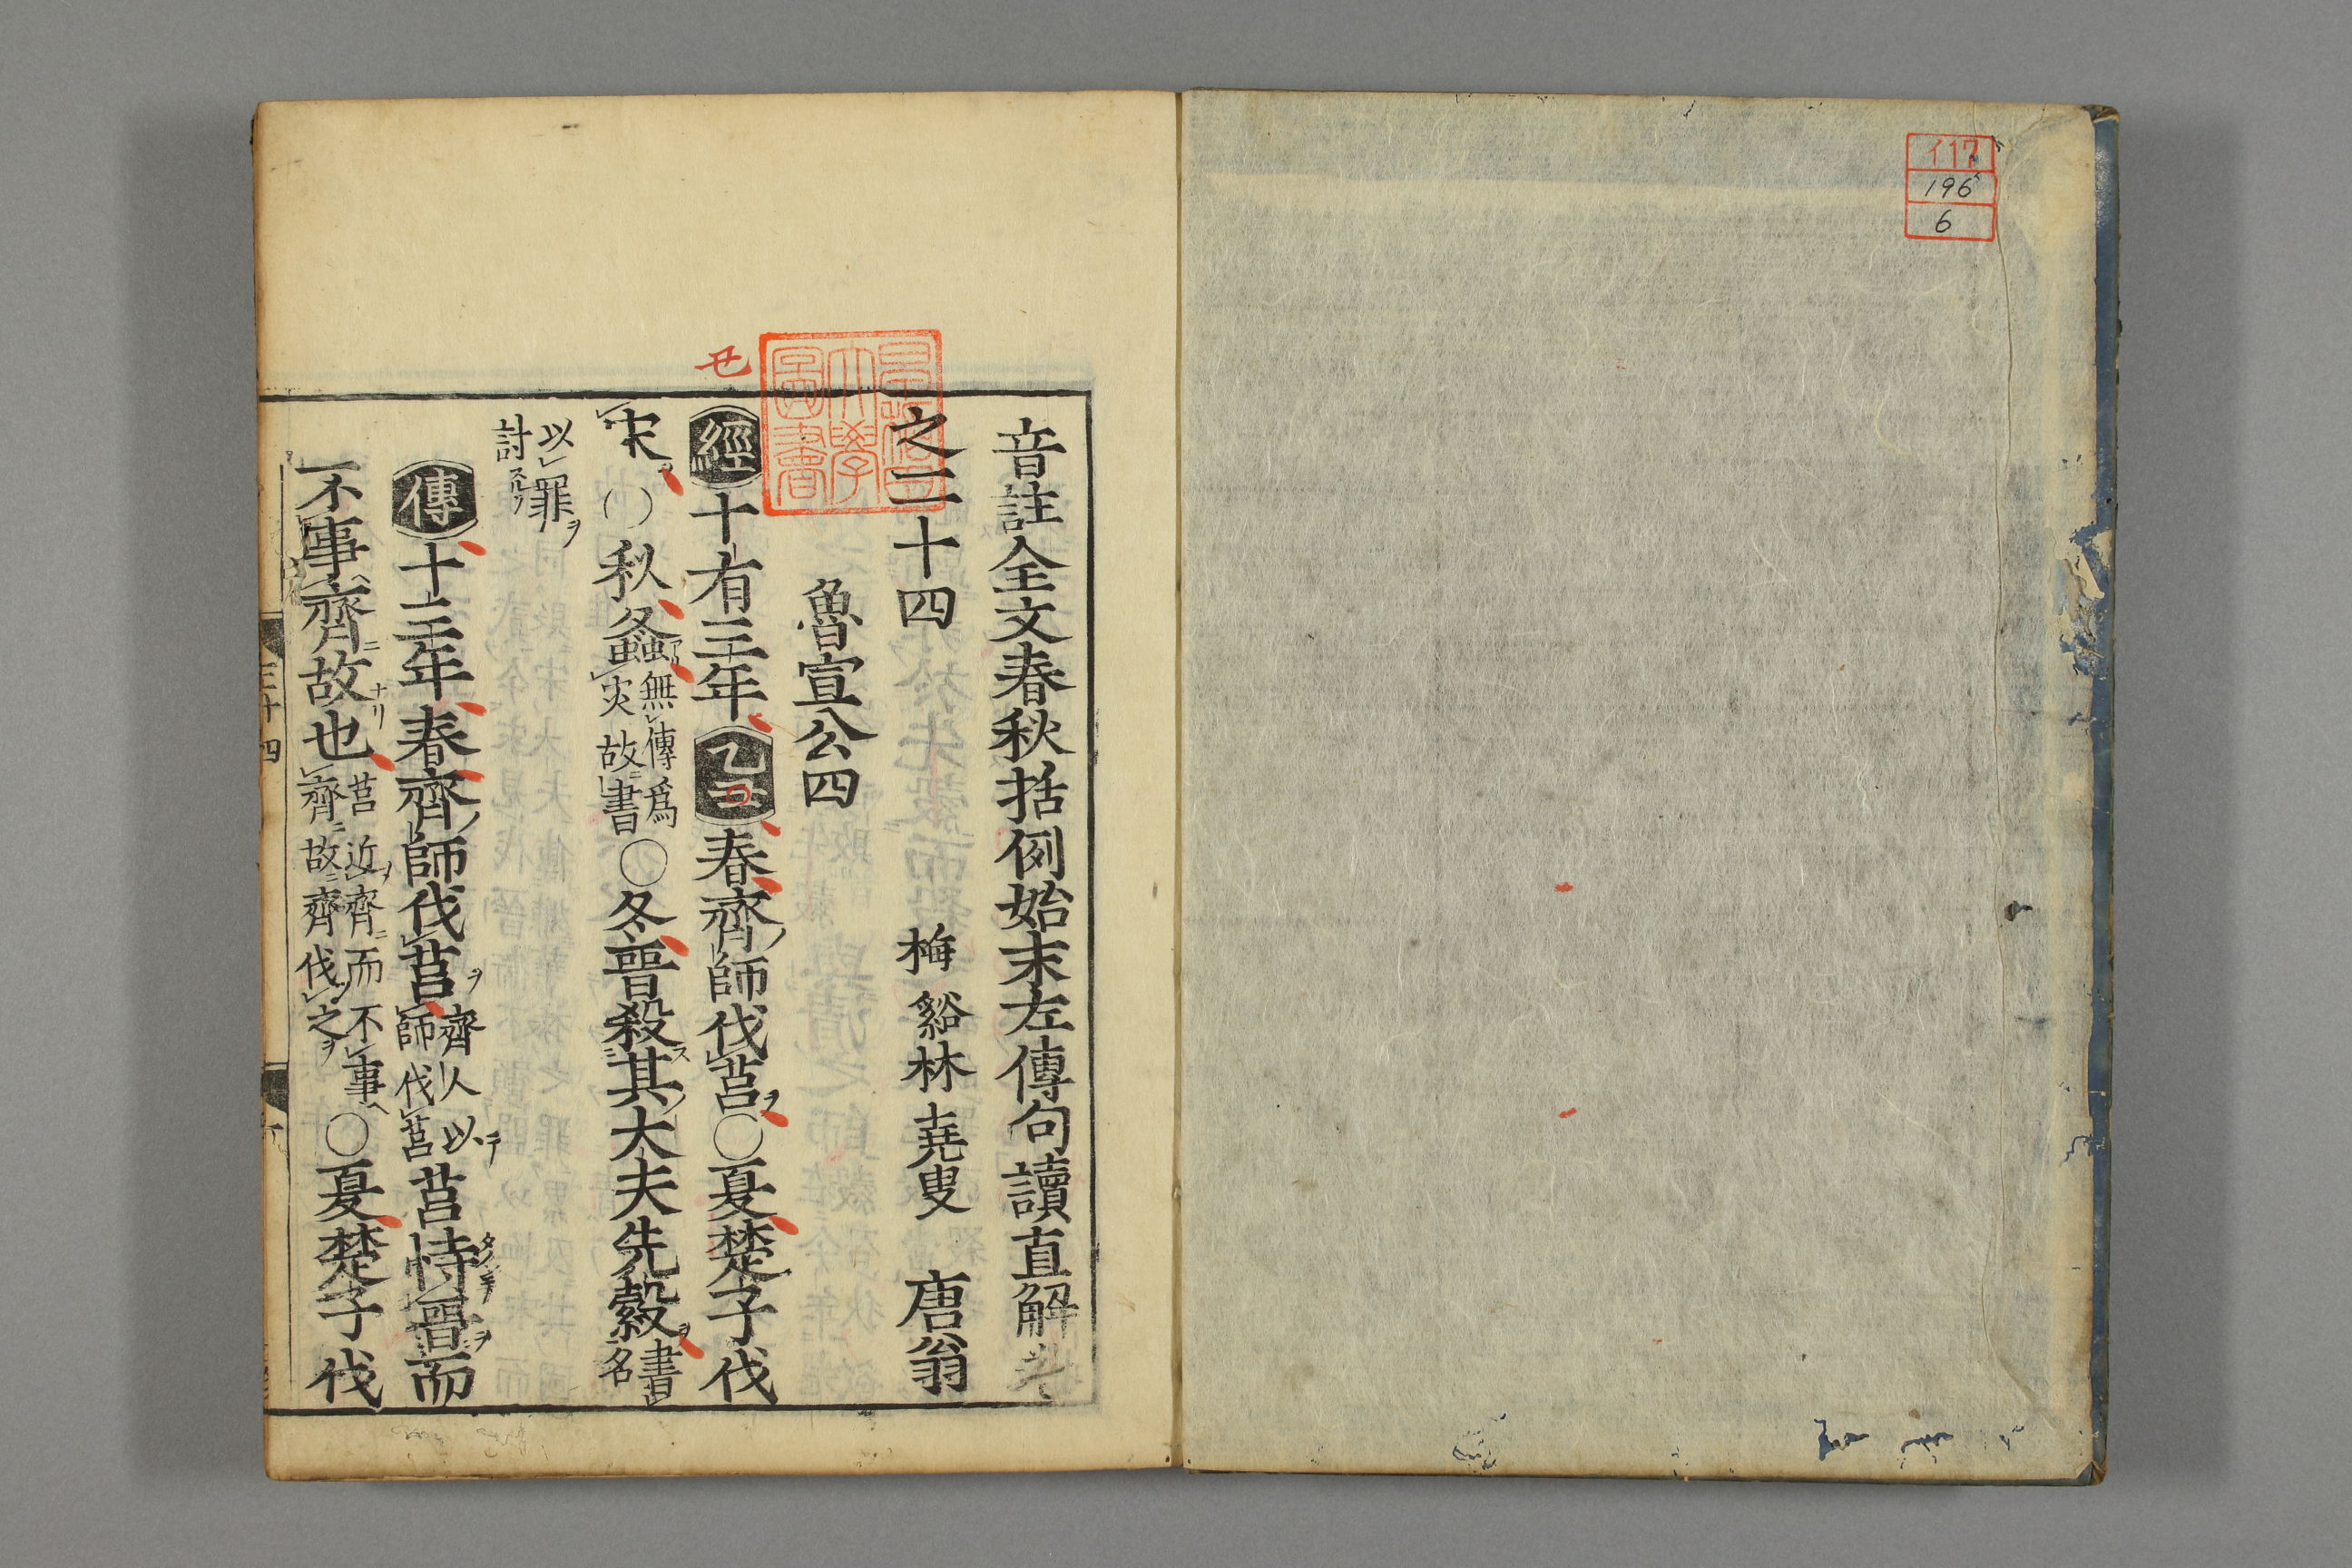 イ17
196
6
音註全文春秋括例始末左傳句讀直解卷
之二十四 梅谿林堯叟 唐翁
魯宣公四
經十有三年乙丑春齊師伐莒〇夏楚子伐
宋〇秋螽無傳爲災故書〇冬晉殺其大夫先縠書名
以罪討
傳十三年春齊師伐莒齊人以師伐莒莒恃晉而
不事齊故也莒近齊而不事齊故齊伐之〇夏楚子伐
早稻田大學圖書